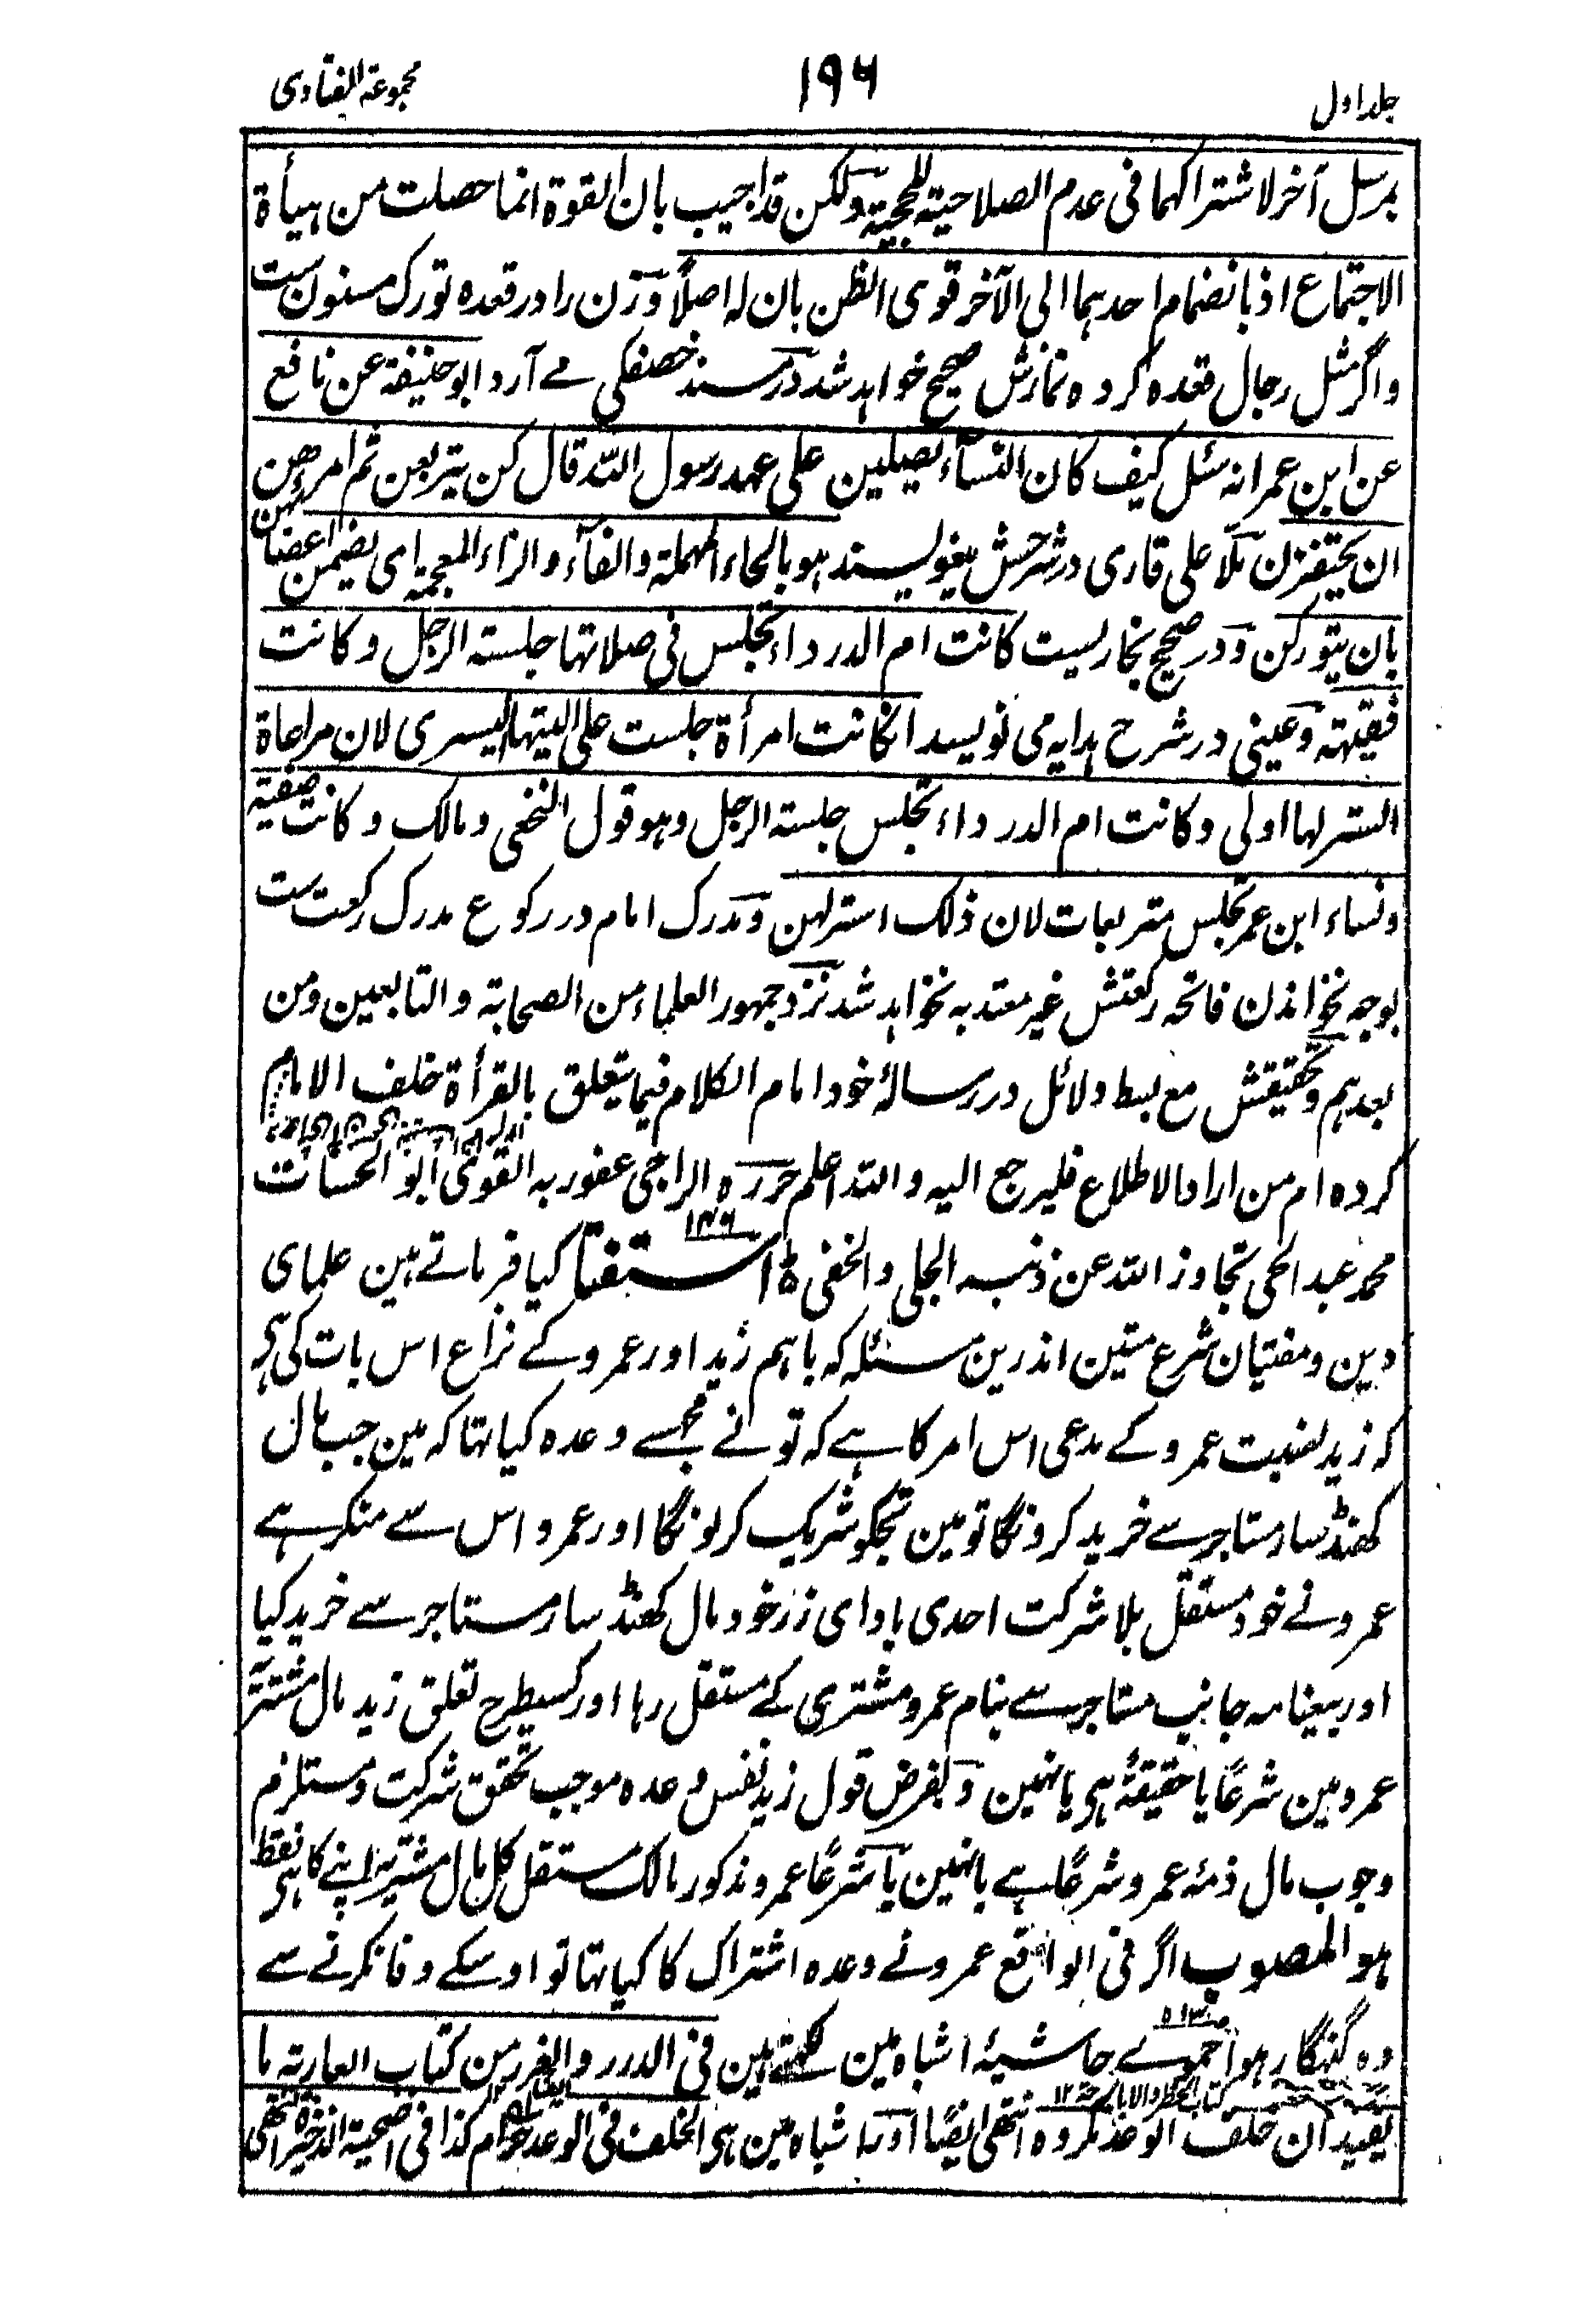 جلد اول
۱۹۶
مجموعة الفتاوی
بمرسل آخر لاشتراکهما فی عدم الصلاحیة للحجیة ولکن قد اجیب بان القوة انما حصلت من هیأة
الاجتماع اذ بانضمام احدهما الی الآخر قوی الظن بان له اصلاً وزن را در قعده تورک مسنون ست
واگر مثل رجال قعده کرده نمازش صحیح خواهد شد در مسند حصفکی مے آرد ابو حنیفة عن نافع
عن ابن عمر انه سئل کیف کان النساء یصلین علی عهد رسول الله قال کن یتربعن ثم امرهن
ان یحتفزن ملا علی قاری در شرحش میفویسند هو بالحاء المهملة والفاء والزاء المعجمة ای یضممن اعضائهن
بان یتورکن ودر صحیح بخاریست کانت ام الدرداء تجلس فی صلاتها جلسة الرجل وکانت
فقیهة وعینی در شرح هدایه می نویسد ان کانت امرأة جلست علی الیتها الیسری لان مراعاة
الستر لها اولی وکانت ام الدرداء تجلس جلسة الرجل وهو قول النخعی ومالک وکانت صفیة
ونساء ابن عمر تجلس متربعات لان ذلک استر لهن ومدرک امام در رکوع مدرک رکعت ست
بوجه نخواندن فاتحه رکعتش غیر معتد به نخواهد شد نزد جمهور العلماء من الصحابة والتابعین ومن
بعدهم وتحقیقش مع بسط دلائل در رسالۂ خود امام الکلام فیما یتعلق بالقرأة خلف الامام
کرده ام من اراد الاطلاع فلیرجع الیه والله اعلم حرره الراجی عفو ربه القوی ابو الحسنات
محمد عبد الحی تجاوز الله عن ذنبه الجلی والخفی استفتا کیا فرماتے ہین علمای
دین ومفتیان شرع متین اندرین مسئلہ کہ باہم زید اور عمرو کے نزاع اس بات کی ہی
کہ زید نسبت عمرو کے مدعی اس امر کا ہے کہ تو نے مجہسے وعدہ کیا تہا کہ مین جب مال
کھنڈسار مستاجر سے خرید کرونگا تو مین تجکو شریک کرلونگا اور عمرو اس سے منکر ہے
عمرو نے خود مستقل بلا شرکت احدی بادای زر خود مال کھنڈسار مستاجر سے خرید کیا
اور بیعنامہ جانب مستاجر سے بنام عمرو مشتری کے مستقل رہا اور کسیطرح تعلق زید مال مشتریہ
عمرو مین شرعًا یا حقیقةً ہی یا نہین وبفرض قول زید نفس وعدہ موجب تحقق شرکت ومستلزم
وجوب مال ذمۂ عمرو شرعًا ہے یا نہین یا شرعًا عمرو مذکور مالک مستقل کل مال مشتریہ اپنے کا ہی فقط
ہو المصوب اگر فی الواقع عمرو نے وعدہ اشتراک کا کیا تہا تو اوسکے وفا نکرنے سے
وہ گنہگار ہوا حموی حاشیۂ اشباہ مین لکہتے ہین فی الدرر والغرر من کتاب العاریة ما
یفید ان خلف الوعد مکروہ انتهی ایضًا اور اشباہ مین ہی الخلف فی الوعد حرام کذا فی اضحیة الذخیرة انتهی